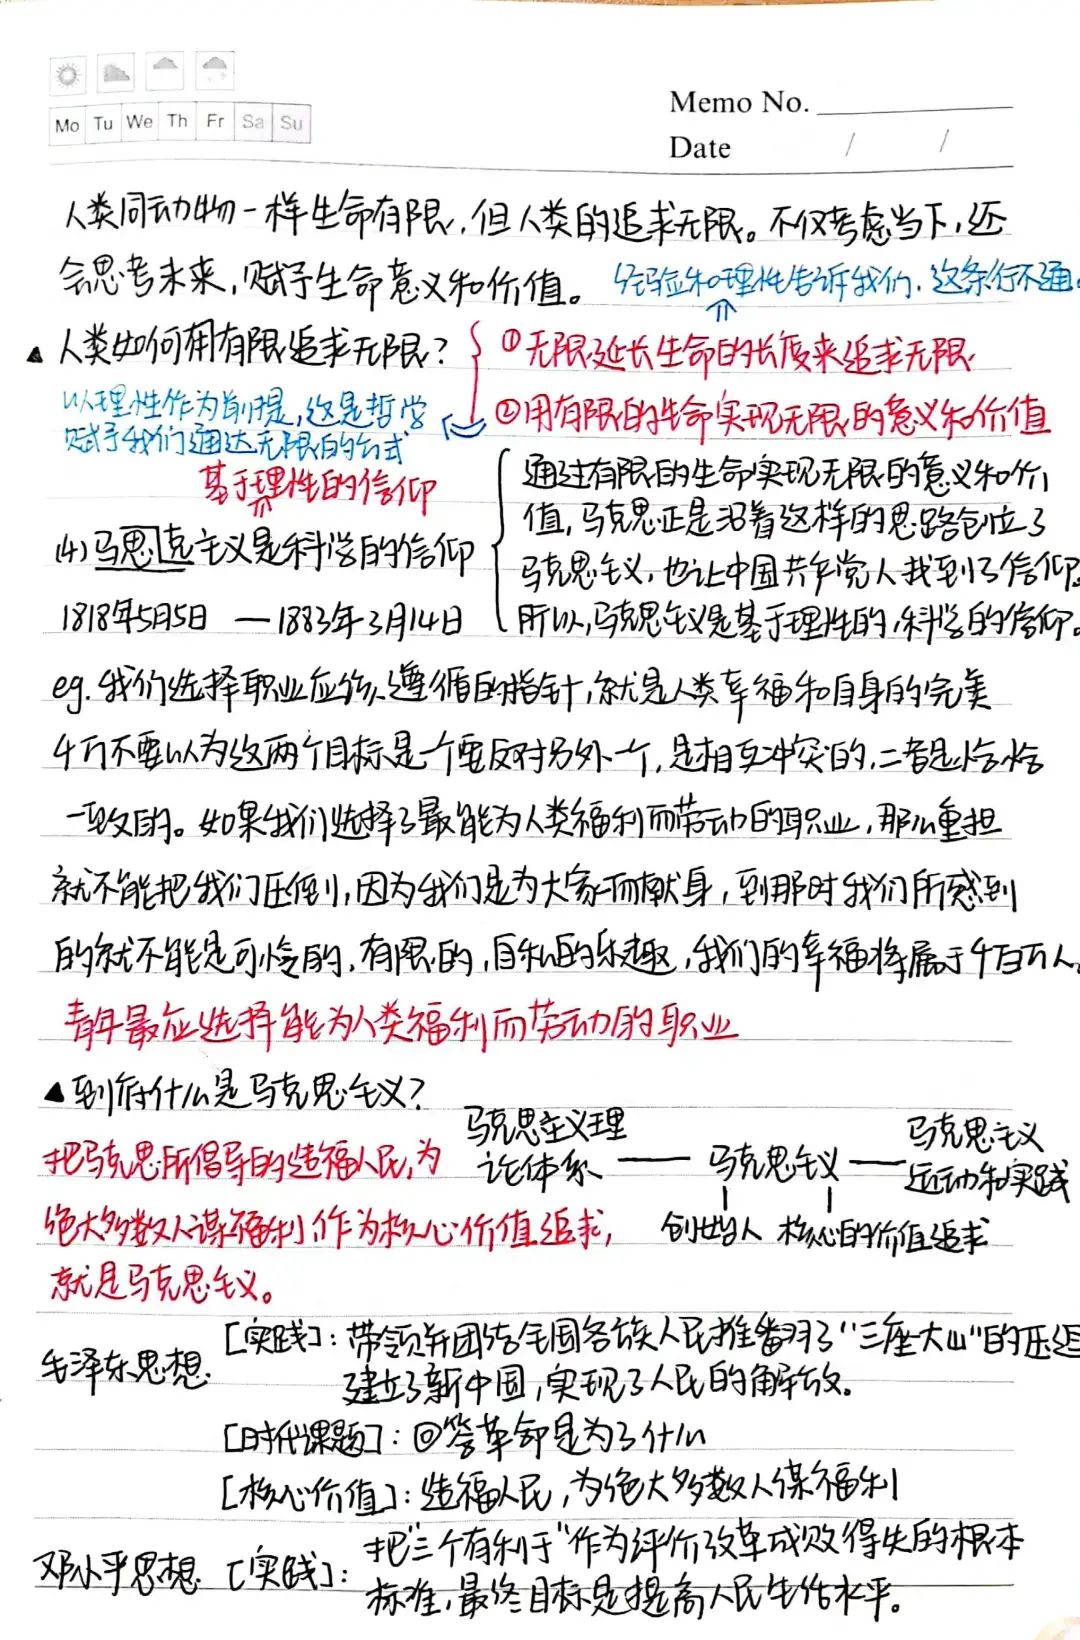 Mo Tu We Th Fr Sa Su
Memo No.
Date / /
人类同动物一样生命有限,但人类的追求无限。不仅考虑当下,还
会思考未来,赋予生命意义和价值。
经验和理性告诉我们,这条行不通。
▲人类如何用有限追求无限?
①无限延长生命的长度来追求无限
②用有限的生命实现无限的意义和价值
以理性作为前提,这是哲学
赋予我们通达无限的公式
基于理性的信仰
通过有限的生命实现无限的意义和价
值,马克思正是沿着这样的思路创立了
马克思主义,也让中国共产党人找到了信仰。
所以,马克思主义是基于理性的,科学的信仰。
(4)马思克主义是科学的信仰
1818年5月5日 — 1883年3月14日
eg.我们选择职业应该遵循的指针,就是人类幸福和自身的完美
千万不要以为这两个目标是一个要反对另外一个,是相互冲突的,二者是恰恰
一致的。如果我们选择了最能为人类福利而劳动的职业,那么重担
就不能把我们压倒,因为我们是为大家而献身,到那时我们所感到
的就不能是可怜的,有限的,自私的乐趣,我们的幸福将属于千百万人。
青年最应选择能为人类福利而劳动的职业
▲到底什么是马克思主义?
把马克思所倡导的造福人民,为
绝大多数人谋福利作为核心价值追求,
就是马克思主义。
马克思主义理
论体系 — 马克思主义 — 马克思主义
运动和实践
创始人 核心的价值追求
毛泽东思想
[实践]:带领并团结全国各族人民推翻了“三座大山”的压迫
建立了新中国,实现了人民的解放。
[时代课题]:回答革命是为了什么
[核心价值]:造福人民,为绝大多数人谋福利
邓小平思想 [实践]:把“三个有利于”作为评价改革成败得失的根本
标准,最终目标是提高人民生活水平。